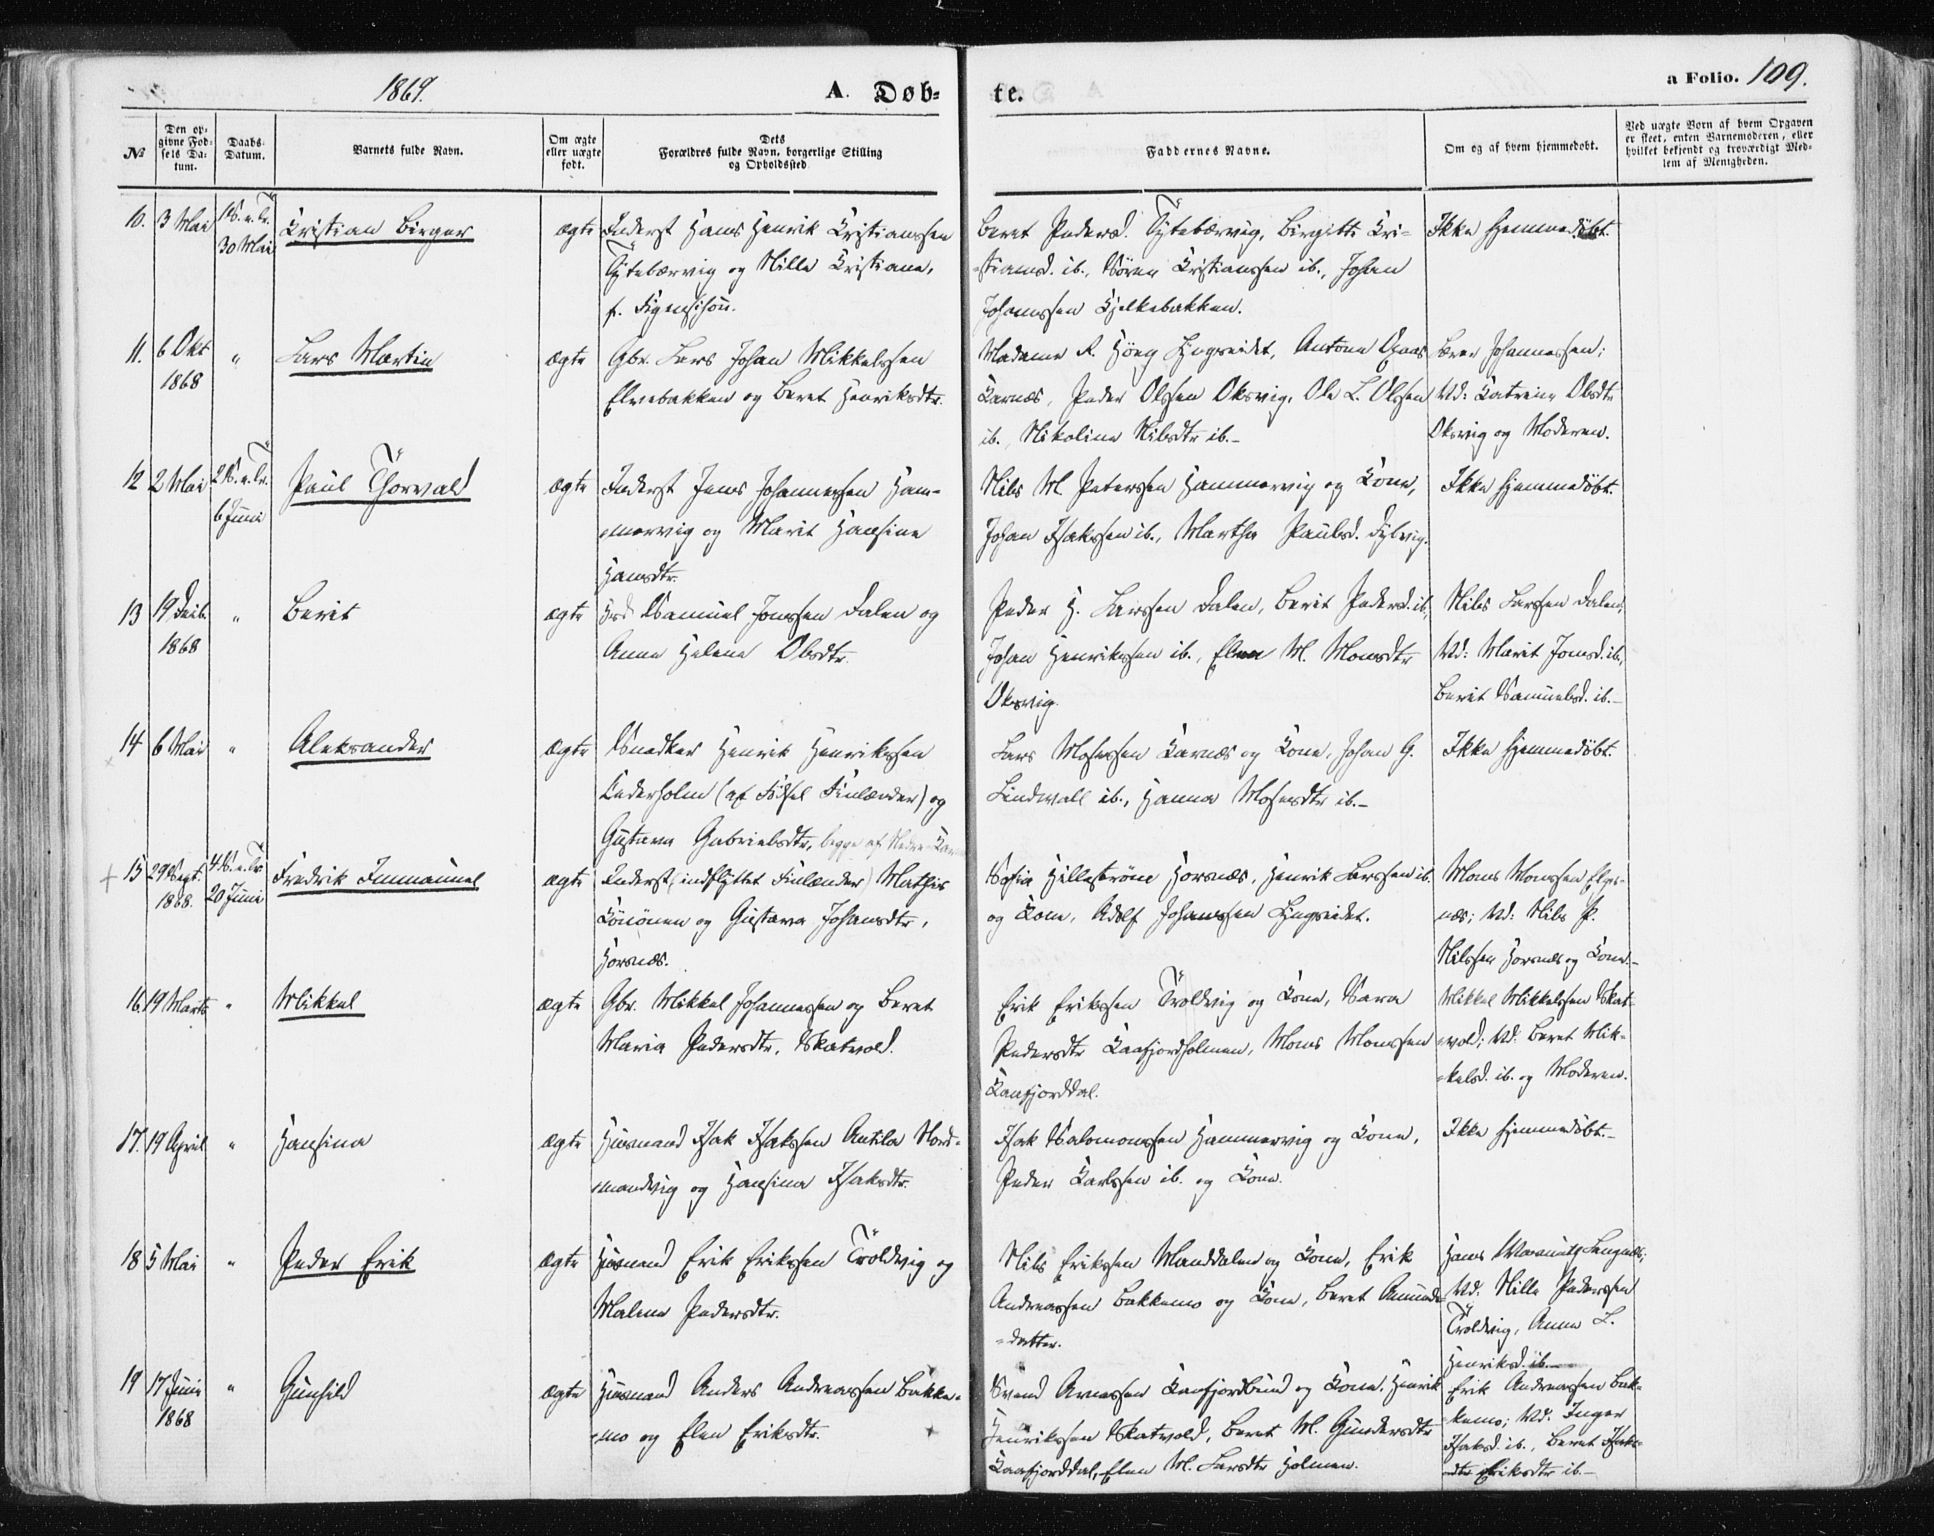 1869.
A. Døb-
te.
a Folio. 109.
№
Den op-
givne Fød-
sels Da-
tum.
Daabs-
Datum.
Barnets fulde Navn.
Om ægte
eller uægte
født.
Dets
Forældres fulde Navn, borgerlige Stilling
og Opholdssted.
Faddernes Navne.
Om og af hvem hjemmedøbt.
Ved uægte Børn af hvem Opgaven
er skeet, enten Barnemoderen, eller
hvilket bekjendt og troværdigt Med-
lem af Menigheden.
10. 3 Mai
1 S. e. Tr.
30 Mai
Kristian Birger
ægte
Inderst Hans Henrik Kristianssen
Tytebærvig og Nille Kristiane,
f. Figenschou.
Beret Pedersd. Tytebærvig, Birgitte Kri-
stiansd. ib., Sören Kristianssen ib., Johan
Johanssen Kjelkebakken.
Ikke hjemmedöbt.
11. 6 Okt
1868
"
Lars Martin
ægte
Gbr. Lars Johan Mikkelssen
Elvebakken og Beret Henriksdtr.
Madame A. Höeg Lyngseidet, Antone
Karnæs, Peder Olssen Oksvig, Ole L. Olssen
ib., Nikoline Nilsdtr ib.-
Lærer Johannessen;
Vd: Katrine Olsdtr
Oksvig og Moderen.
12 2 Mai
2 S. e. Tr.
6 Juni
Paul Thorvald
ægte
Inderst Jens Johannessen Ham-
mervig og Marit Hansine
Hansdtr.
Nils M. Peterssen Hammervig og Kone,
Johan Isakssen ib., Martha Paulsd. Dylvig.
Ikke hjemmedöbt.
13 19 Decb.
1868
"
Berit
ægte
Samuel Jonssen Dalen og
Anne Helene Olsdtr.
Peder H. Larssen Dalen, Berit Pedersd. ib.,
Johan Henrikssen ib., Elen M. Monsdtr
Oksvig.
Nils Larssen Dalen;
Vd: Marit Jonsd. ib.,
Berit Samuelsd. ib.-
14 6 Mai
"
Aleksander
ægte
Snedker Henrik Henrikssen
Cederholm (af Födsel Finlænder) og
Gustava Gabrielsdtr, begge af Nedre-Kar
Lars Mosessen Karnæs og Kone, Johan G.
Lindwall ib., Hanna Mosesdtr ib.-
Ikke hjemmedöbt.
15 29 Sept.
1868.
4 S. e. Tr.
20 Juni
Fredrik Immanuel
ægte
Inderst (indflyttet Finlænder) Mathis
Könönen og Gustava Johansdtr,
Horsnæs.
Sofia Hilleströne Horsnæs, Henrik Larssen ib.
og Kone, Adolf Johanssen Lyngseidet.
Mons Monssen Elges-
næs; Vd: Nils P.
Nilssen Horsnæs og Kone.-
16. 19 Marts
"
Mikkel
ægte
Gbr. Mikkel Johannessen og Beret
Maria Pedersdtr, Skatvold.
Erik Erikssen Troldvig og Kone, Sara
Pedersdtr Kaafjordholmen, Mons Monssen
Kaafjorddal.
Mikkel Mikkelssen Skat-
vold; Vd: Beret Mik-
kelsd. ib. og Moderen.
17. 19 April
"
Hansina
ægte
Husmand Isak Isakssen Antila Nord-
mandvig og Hansina Isaksdtr.
Isak Salomonssen Hammervig og Kone,
Peder Karlssen ib. og Kone.
Ikke hjemmedöbt.-
18 5 Mai
"
Peder Erik
ægte
Husmand Erik Erikssen Troldvig og
Malena Pedersdtr.
Nils Erikssen Manddalen og Kone, Erik
Andreassen Bakkemo og Kone, Beret Amunds-
datter.
Hans Langnæs;
Vd. Nille Pederssen
Troldvig, Anne L.
Henriksd. ib.-
19 17 Juni
1868
"
Gunhild
ægte
Husmand Anders Andreassen Bakke-
mo og Elen Eriksdtr.
Svend Arnessen Kaafjordbund og Kone, Henrik
Henrikssen Skatvold, Beret M. Gundersdtr
Kaafjorddal, Elen M. Larsdtr Holmen.
Erik Andreassen Bak-
kemo; Vd. Inger
Isaksd. ib., Beret Isaks-
dtr Eriksdtr ib.-